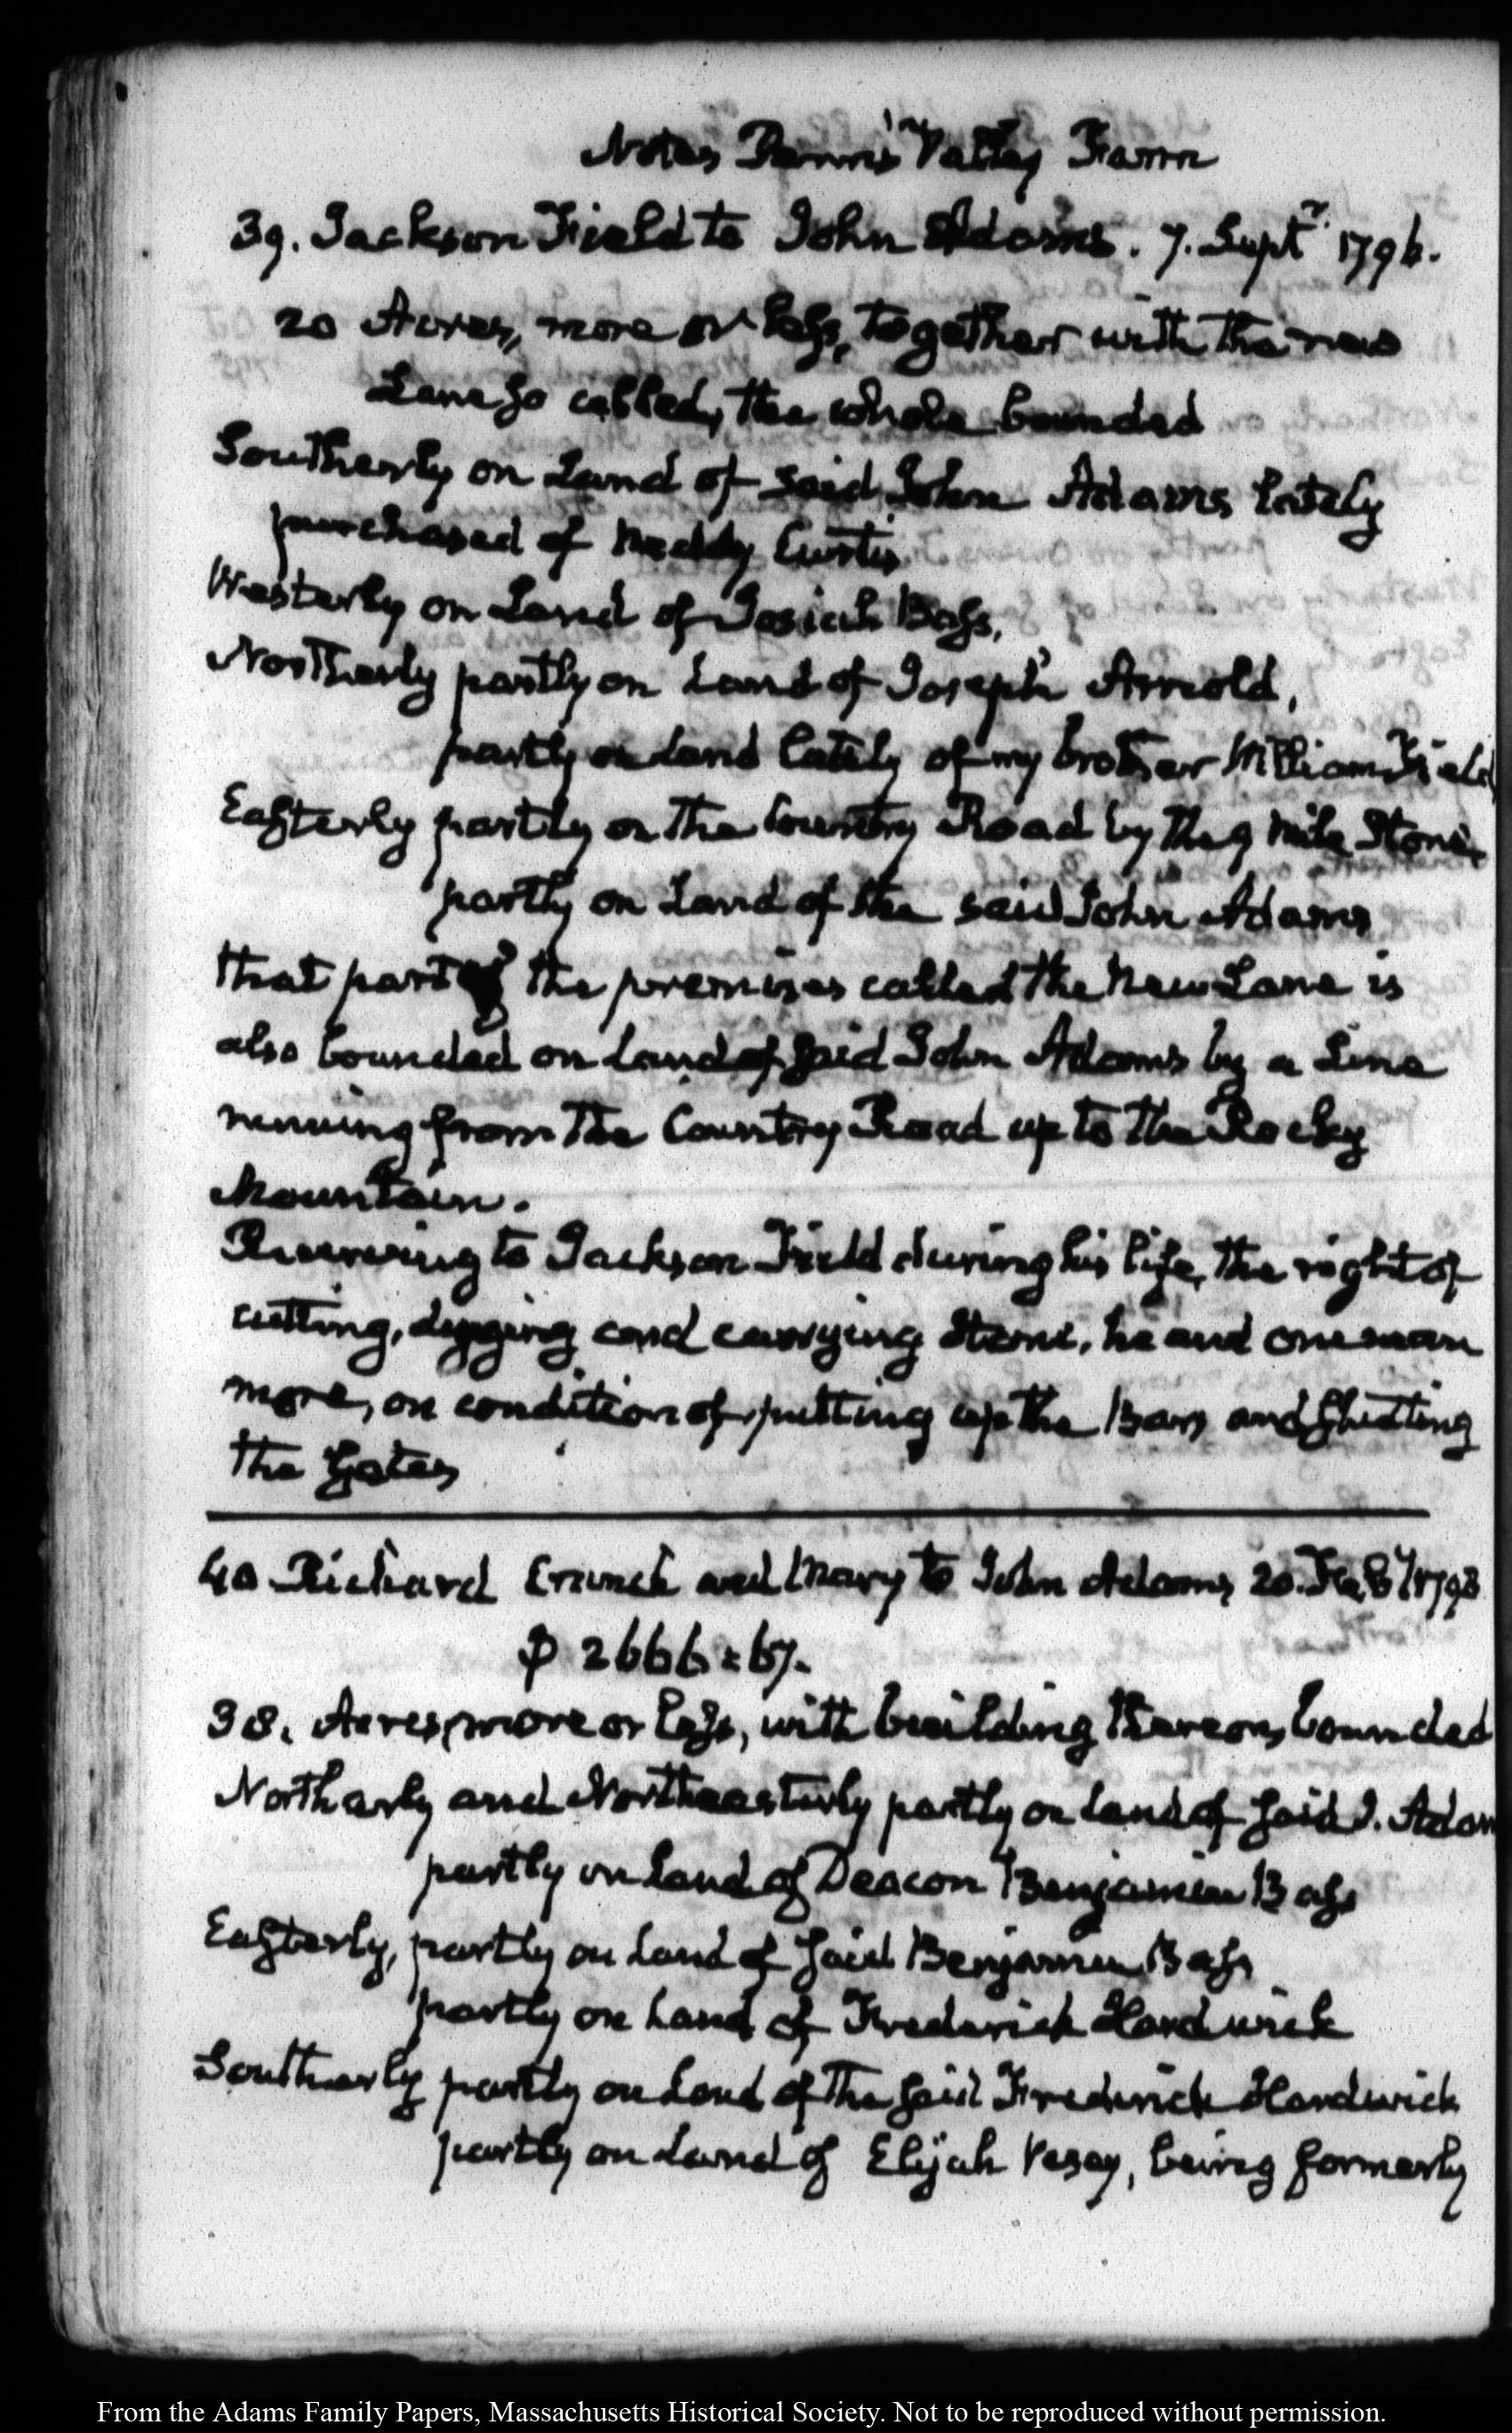 Notes Penns' Valley Farm
39. Jackson Field to John Adams. 7. Septr. 1796.
20 Acres, more or less, together with the new
Lane so called, the whole bounded
Southerly on Land of said John Adams lately
purchased of Neddy Curtis
Westerly on Land of Josiah Bass,
Northerly partly on Land of Joseph Arnold,
partly on Land lately of my brother William Field
Easterly partly on the Country Road by the 9 mile Stone,
partly on Land of the said John Adams
that part of the premises called the New Lane is
also bounded on Land of said John Adams by a Line
running from the Country Road up to the Rocky
Mountain.
Reserving to Jackson Field during his life, the right of
cutting, digging and carrying Stone, he and one man
more, on condition of putting up the Bars and shutting
the Gates
40 Richard Cranch and Mary to John Adams 20. Feby 1798
$ 2666=67.
38. Acres more or less, with building thereon, bounded
Northerly and Northeasterly partly on Land of said J. Adam
partly on Land of Deacon Benjamin Bass
Easterly, partly on Land of said Benjamin Bass
partly on Land of Frederick Hardwick
Southerly partly on Land of the said Frederick Hardwick
partly on Land of Elijah Vesey, being formerly
From the Adams Family Papers, Massachusetts Historical Society. Not to be reproduced without permission.